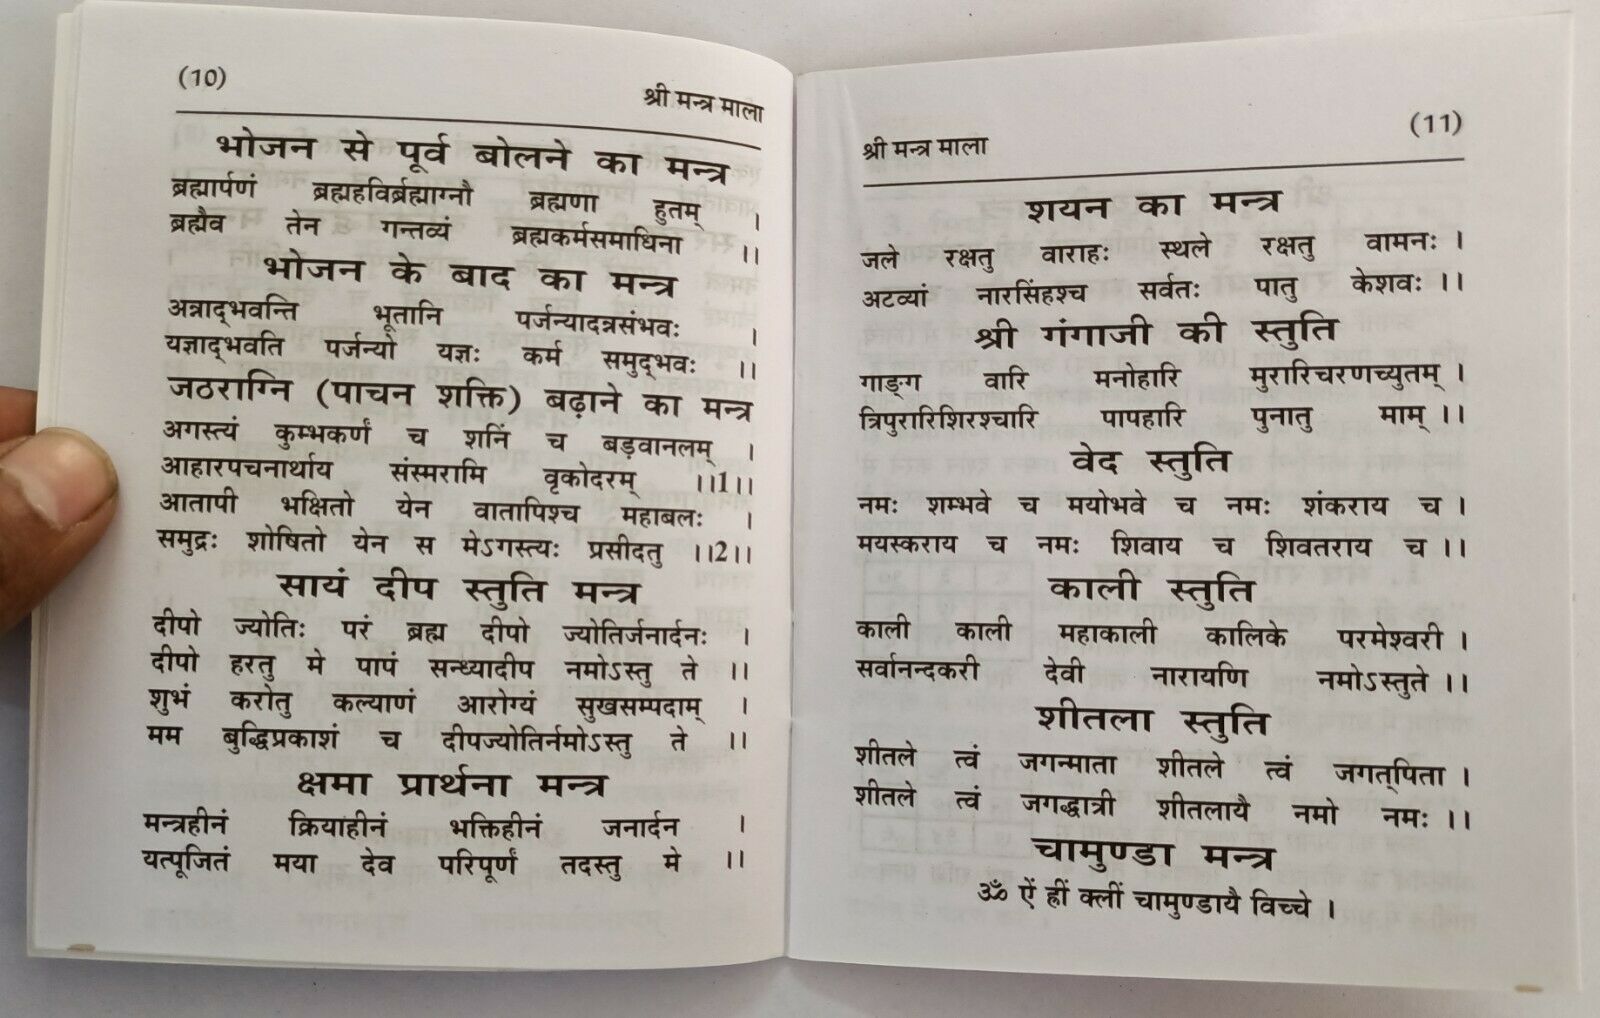 (10)
श्री मन्त्र माला
भोजन से पूर्व बोलने का मन्त्र
ब्रह्मार्पणं ब्रह्महविर्ब्रह्माग्नौ ब्रह्मणा हुतम् ।
ब्रह्मैव तेन गन्तव्यं ब्रह्मकर्मसमाधिना ।।
भोजन के बाद का मन्त्र
अन्नाद्भवन्ति भूतानि पर्जन्यादन्नसंभवः ।
यज्ञाद्भवति पर्जन्यो यज्ञः कर्म समुद्भवः ।।
जठराग्नि (पाचन शक्ति) बढ़ाने का मन्त्र
अगस्त्यं कुम्भकर्णं च शनिं च बड़वानलम् ।
आहारपचनार्थाय संस्मरामि वृकोदरम् ।।1।।
आतापी भक्षितो येन वातापिश्च महाबलः ।
समुद्रः शोषितो येन स मेऽगस्त्यः प्रसीदतु ।।2।।
सायं दीप स्तुति मन्त्र
दीपो ज्योतिः परं ब्रह्म दीपो ज्योतिर्जनार्दनः ।
दीपो हरतु मे पापं सन्ध्यादीप नमोऽस्तु ते ।।
शुभं करोतु कल्याणं आरोग्यं सुखसम्पदाम् ।
मम बुद्धिप्रकाशं च दीपज्योतिर्नमोऽस्तु ते ।।
क्षमा प्रार्थना मन्त्र
मन्त्रहीनं क्रियाहीनं भक्तिहीनं जनार्दन ।
यत्पूजितं मया देव परिपूर्णं तदस्तु मे ।।
श्री मन्त्र माला
(11)
शयन का मन्त्र
जले रक्षतु वाराहः स्थले रक्षतु वामनः ।
अटव्यां नारसिंहश्च सर्वतः पातु केशवः ।।
श्री गंगाजी की स्तुति
गाङ्ग वारि मनोहारि मुरारिचरणच्युतम् ।
त्रिपुरारिशिरश्चारि पापहारि पुनातु माम् ।।
वेद स्तुति
नमः शम्भवे च मयोभवे च नमः शंकराय च ।
मयस्कराय च नमः शिवाय च शिवतराय च ।।
काली स्तुति
काली काली महाकाली कालिके परमेश्वरी ।
सर्वानन्दकरी देवी नारायणि नमोऽस्तुते ।।
शीतला स्तुति
शीतले त्वं जगन्माता शीतले त्वं जगत्पिता ।
शीतले त्वं जगद्धात्री शीतलायै नमो नमः ।।
चामुण्डा मन्त्र
ॐ ऐं ह्रीं क्लीं चामुण्डायै विच्चे ।